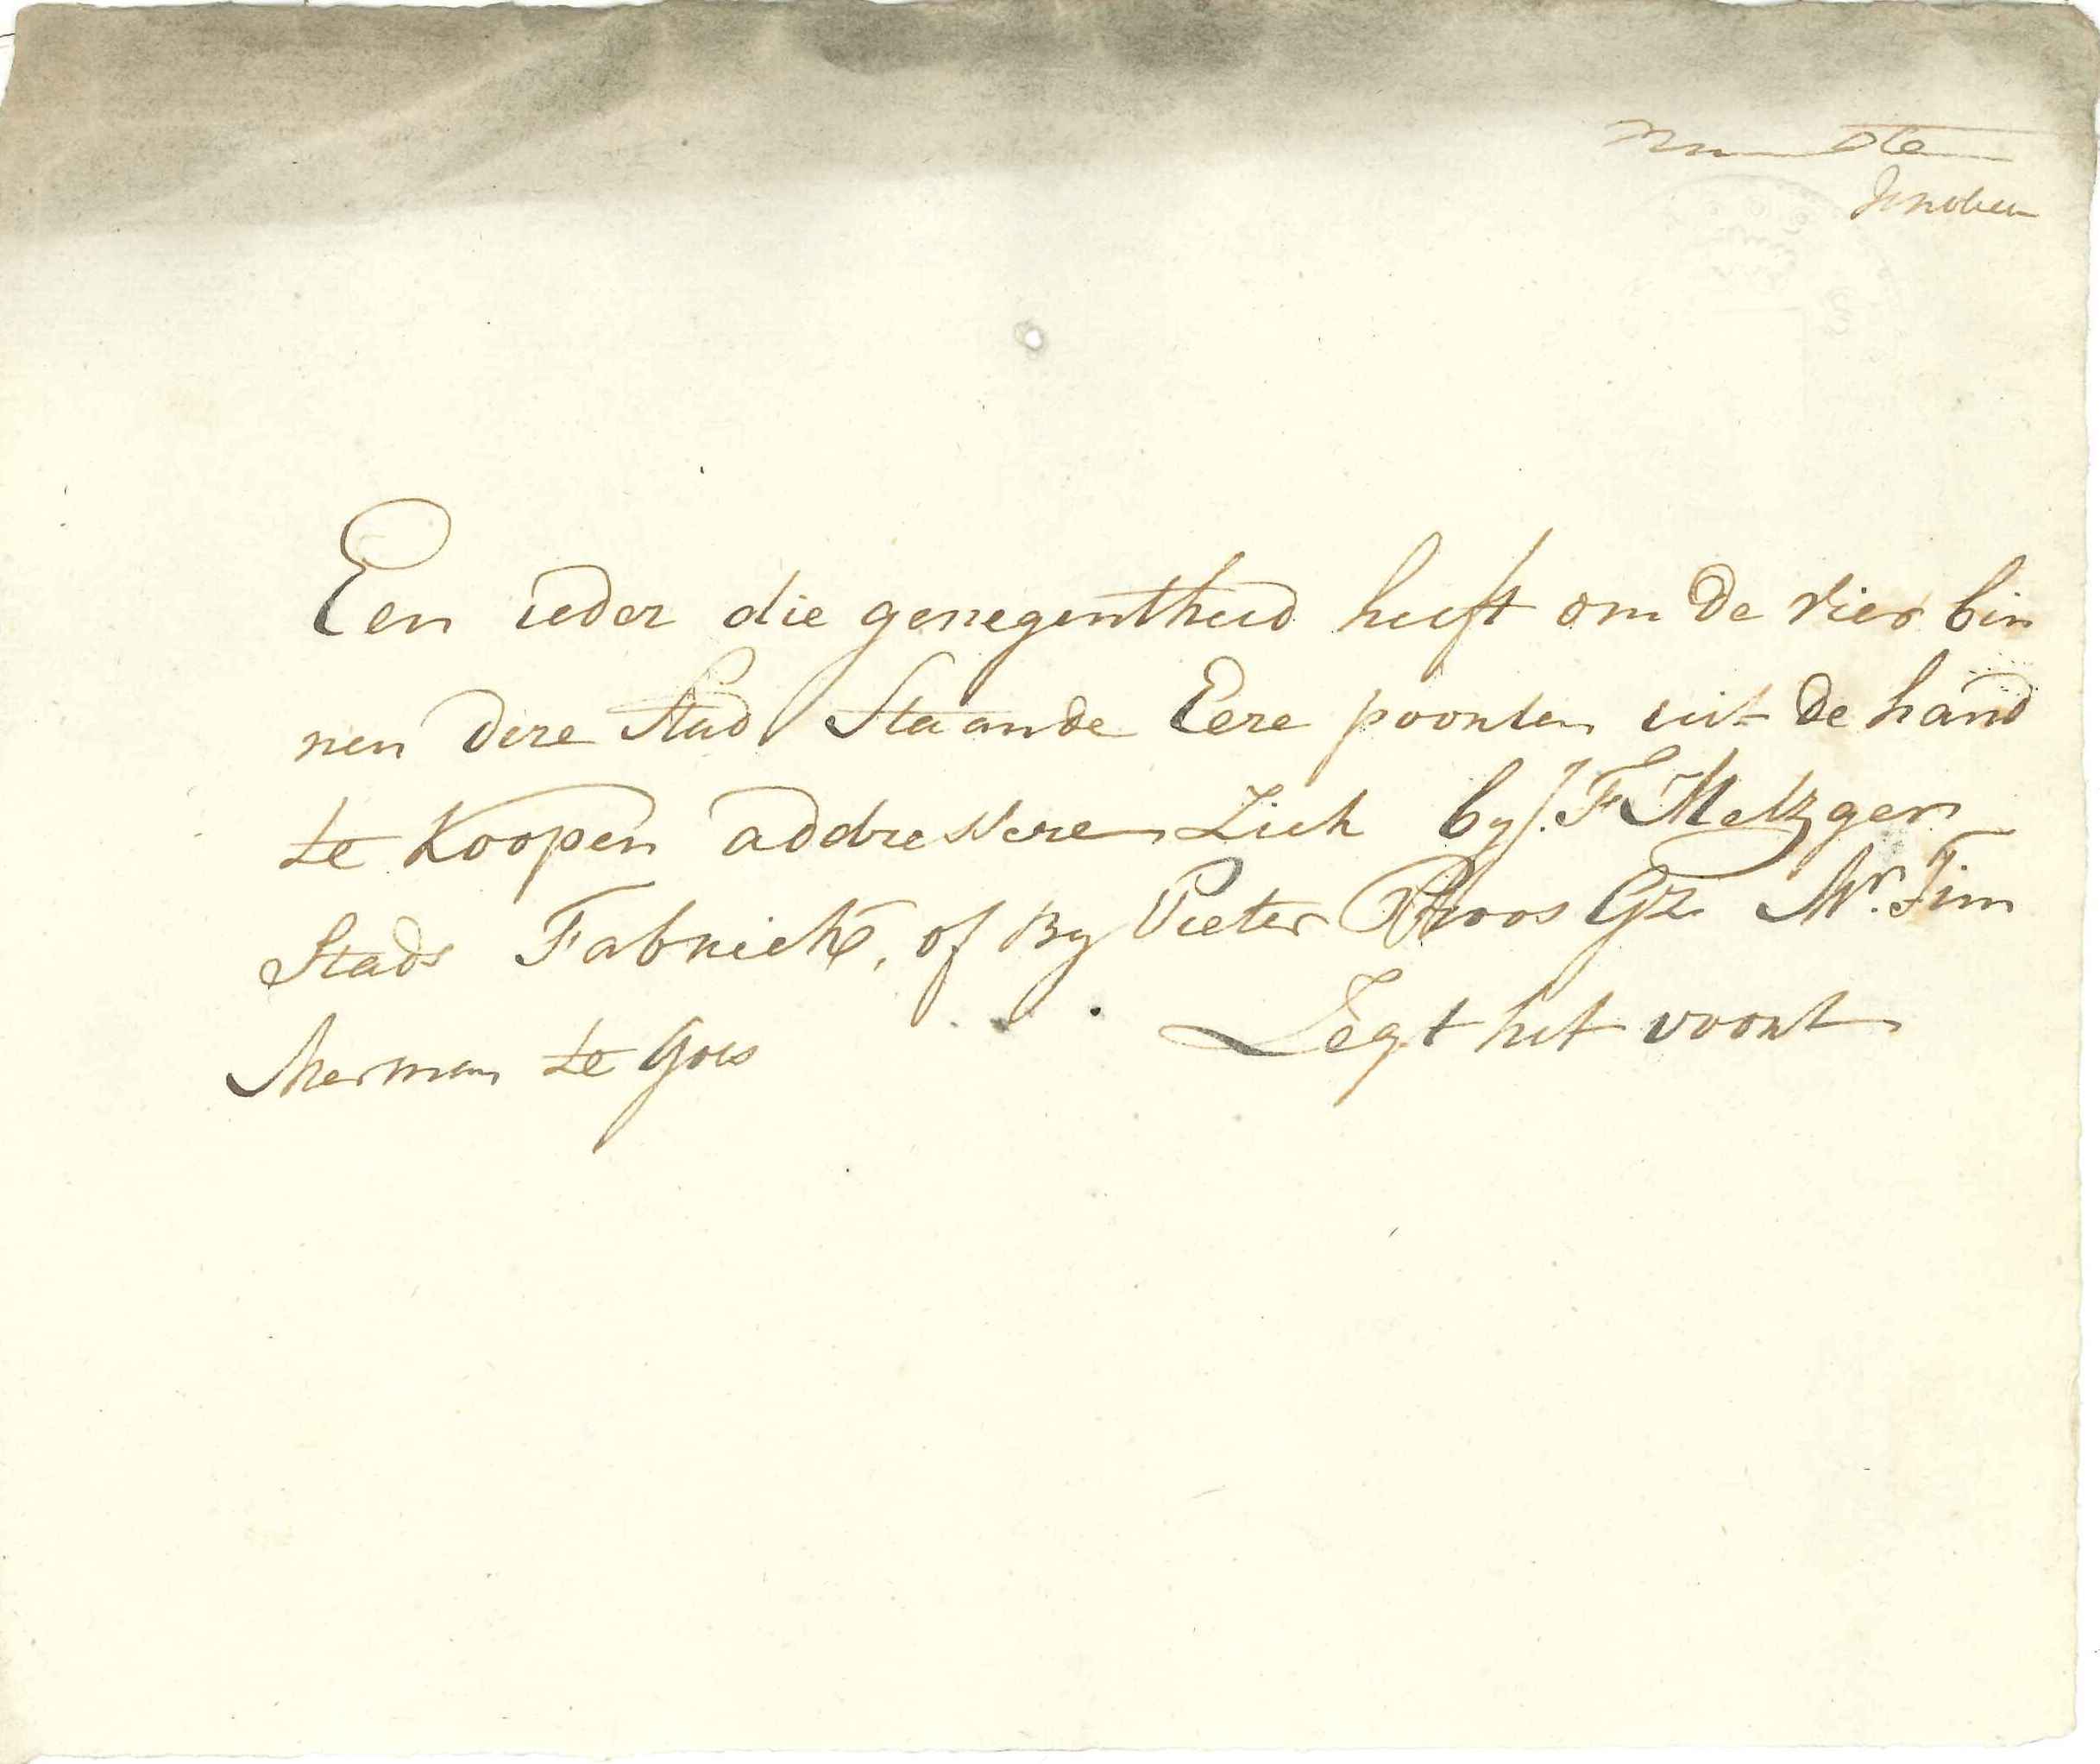 Een ieder die genegentheid heeft om de vier bin
nen dere Stad Staande Eere poorten uit de hand
te Koopen addressere Zich by J. F Metzger
Stads Fabriek, of By Pieter Roos Gz Mr. Tim
merman te Goes Zegt het voort